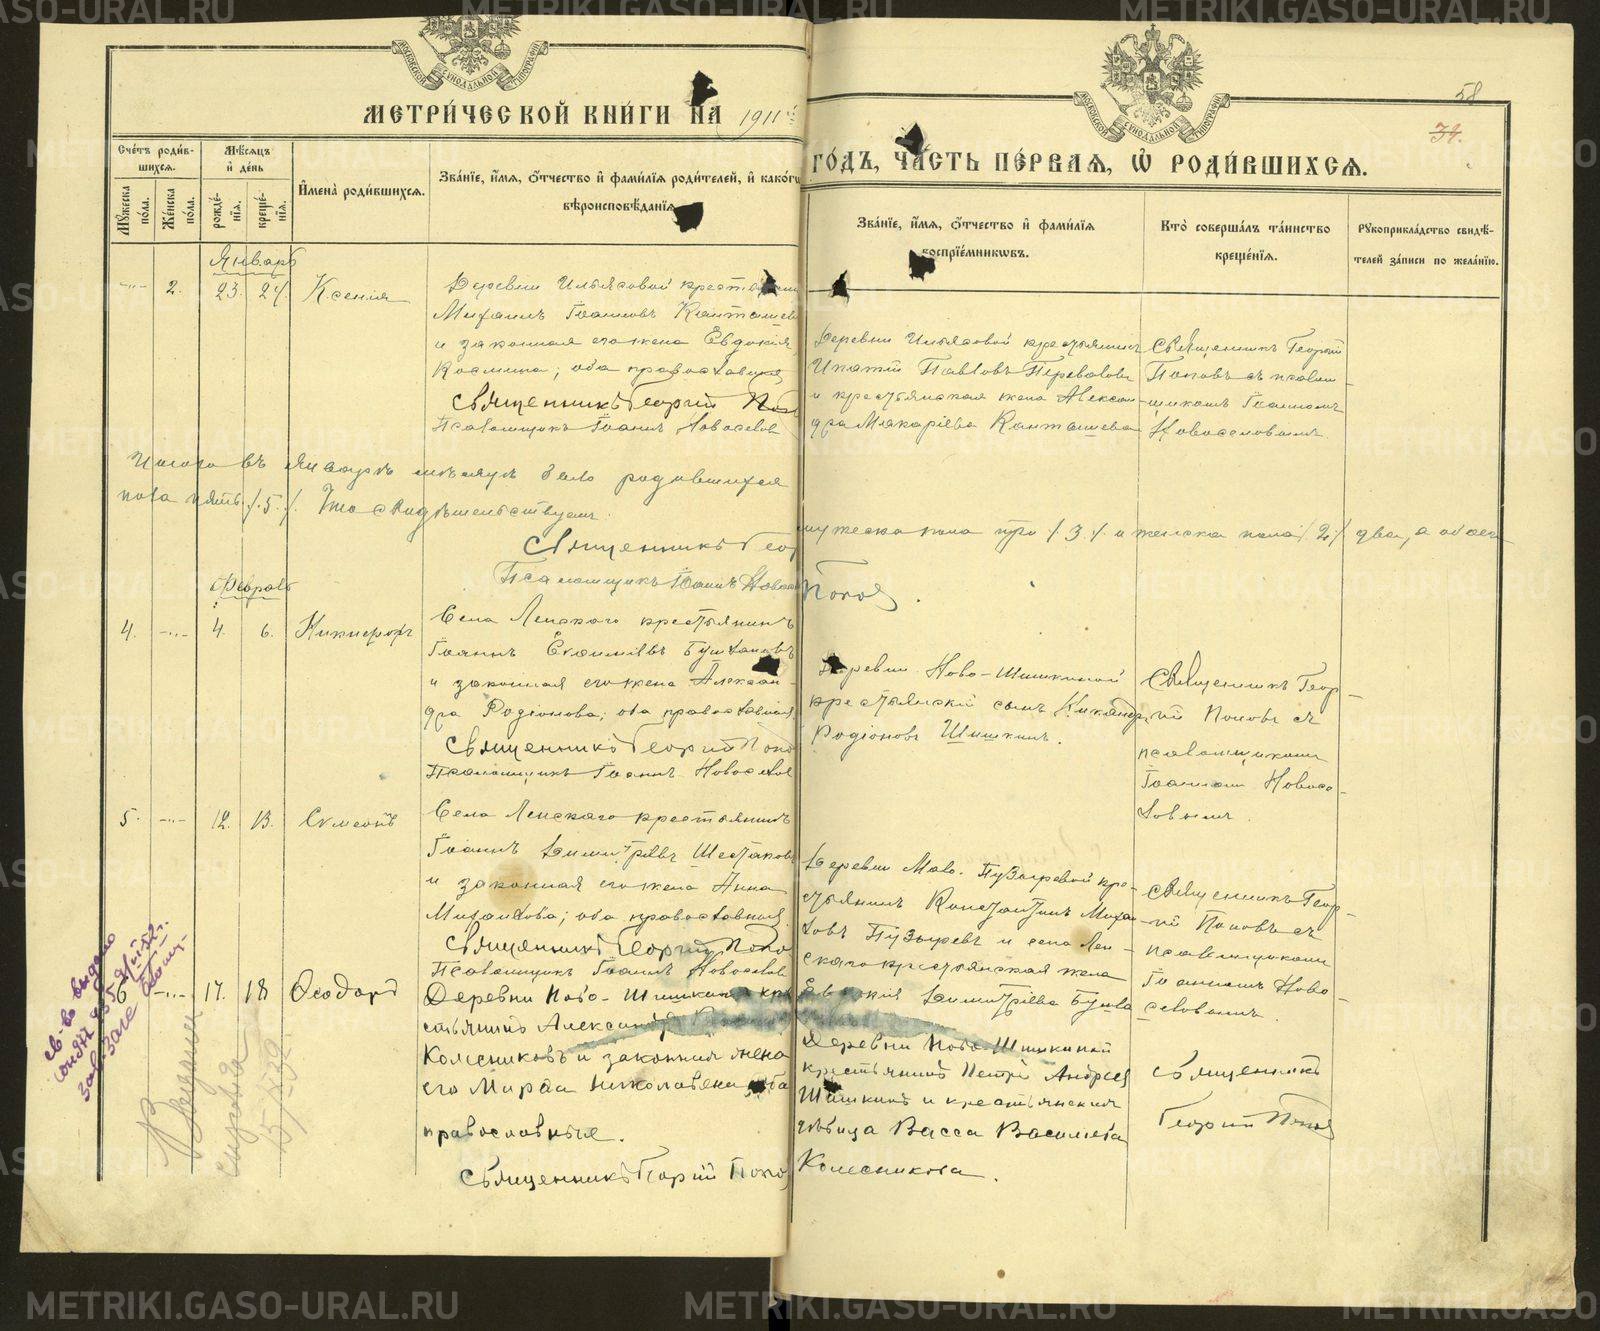 МЕТРИ́ЧЕСКОЙ КНИ́ГИ НА 1911й
ГО́ДЪ, ЧА́СТЬ ПЕ́РВАЯ, Ѡ҆ РОДИ́ВШИХСЯ.
58
34.
Сче́тъ роди́в-
шихся.
Мѣ́сяцъ
и҆ де́нь
Му́жеска
по́ла.
Же́нска
по́ла.
рожде́-
нїя.
креще́-
нїя.
И҆мена̀ роди́вшихся.
Зва́нїе, и҆́мя, ѻ҆́тчество и҆ фами́лїя роди́телей, и҆ како́гѡ
вѣроисповѣ́данїя
Зва́нїе, и҆́мя, ѻ҆́тчество и҆ фами́лїя
воспрїе́мникѡвъ.
Кто̀ соверша́лъ та́инство
креще́нїя.
Рукоприкла́дство свидѣ́-
телей за́писи по жела́нїю.
Январь
2. 23. 24. Ксенія
Деревни Ильясовой
Михаилъ Іоанновъ
и законная его жена Евдокія
Космина; оба православные
Священникъ Георгій Поп
Псаломщикъ Іоаннъ Новоселов
Деревни Ильясовой крестьянинъ
Ипатій Павловъ Перевалов
и крестьянская жена Алексан-
дра Макаріева
Священникъ Георгій
Поповъ съ псалом-
щикомъ Іоанномъ
Новоселовымъ
Итого въ Январѣ мѣсяцѣ было родившихся
мужеска пола три /3/ и женска пола /2/ два, а обоего
пола пять /5/. Что свидѣтельствуемъ
Священникъ Геор
Попов.
Псаломщикъ Іоаннъ Новосел
Февраль
4. 4. 6. Никифоръ
Села Ленскаго крестьянинъ
Іоаннъ
и законная его жена Алексан-
дра Родіонова; оба православные
Священникъ Георгій Попо
Псаломщикъ Іоаннъ Новоселов
Деревни Ново-Шишкиной
крестьянскій сынъ Никандр
Родіоновъ Шишкинъ.
Священникъ Геор-
гій Поповъ съ
псаломщикомъ
Іоанномъ Новосе-
ловымъ.
5. 12. 13. Симеонъ
Села Ленскаго крестьянинъ
Іоаннъ Димитріевъ Шестаков
и законная его жена Анна
Михайлова; оба православные.
Священникъ Георгій Попо
Псаломщикъ Іоаннъ Новоселов
Деревни Мало-Пузыревой кре-
стьянинъ Константинъ Михай-
ловъ Пузыревъ и села Лен-
скаго крестьянская жена
Евдокія Димитріева
Священникъ Геор-
гій Поповъ съ
псаломщикомъ
Іоанномъ Ново-
селовымъ.
6 17. 18 Ѳеодоръ
Деревни Ново-Шишкиной кре
стьянинъ Александръ
Колесниковъ и законная жена
его Марѳа Николаевна оба
православные.
Священникъ Георгій Попо
Деревни Ново-Шишкиной
крестьянинъ Петръ Андреев
Шишкинъ и крестьянская
дѣвица Васса Васильева
Колесникова.
Священникъ
Георгій Попов
св-во выдано
METRIKI.GASO-URAL.RU